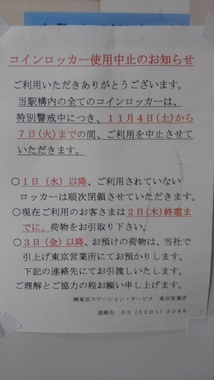 コインロッカー使用中止のお知らせ
ご利用いただきありがとうございます。
当駅構内の全てのコインロッカーは、
特別警戒中につき、11月4日(土)から
7日(火)までの間、ご利用を中止させて
いただきます。
○1日(水)以降、ご利用されていない
ロッカーは順次閉鎖させていただきます。
○現在ご利用のお客さまは2日(木)終電ま
でに、荷物をお引取り下さい。
○3日(金)以降、お預けの荷物は、当社で
引上げ東京営業所にてお預かりします。
下記の連絡先にてお引渡しいたします。
ご理解とご協力の程お願い申し上げます。
㈱東京ステーション・サービス 東京営業所
連絡先 03(3201)3396